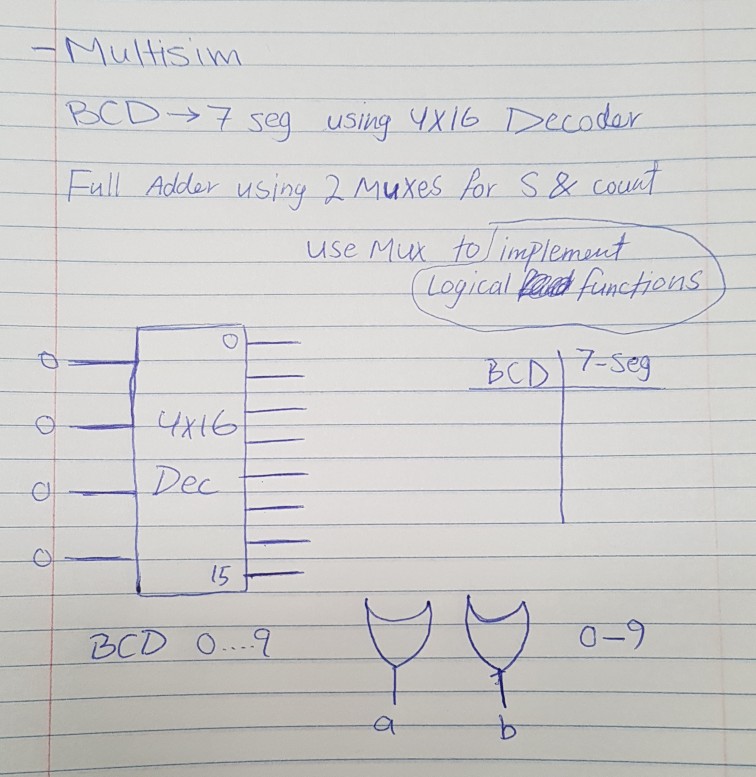 - Multisim
BCD → 7 seg using 4x16 Decoder
Full Adder using 2 Muxes for S & count
use Mux to implement
Logical functions
BCD 7-seg
0
0
0
0
0
4x16
Dec
15
BCD 0....9
0-9
a b